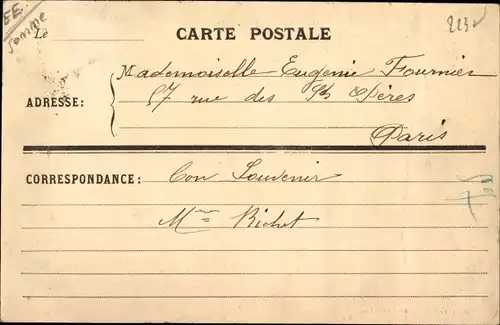 EE.
Somme
223
Le
CARTE POSTALE
ADRESSE:
Mademoiselle Eugenie Fournier
57 rue des Sts Pères
Paris
CORRESPONDANCE: Bon Souvenir
Mme Richet